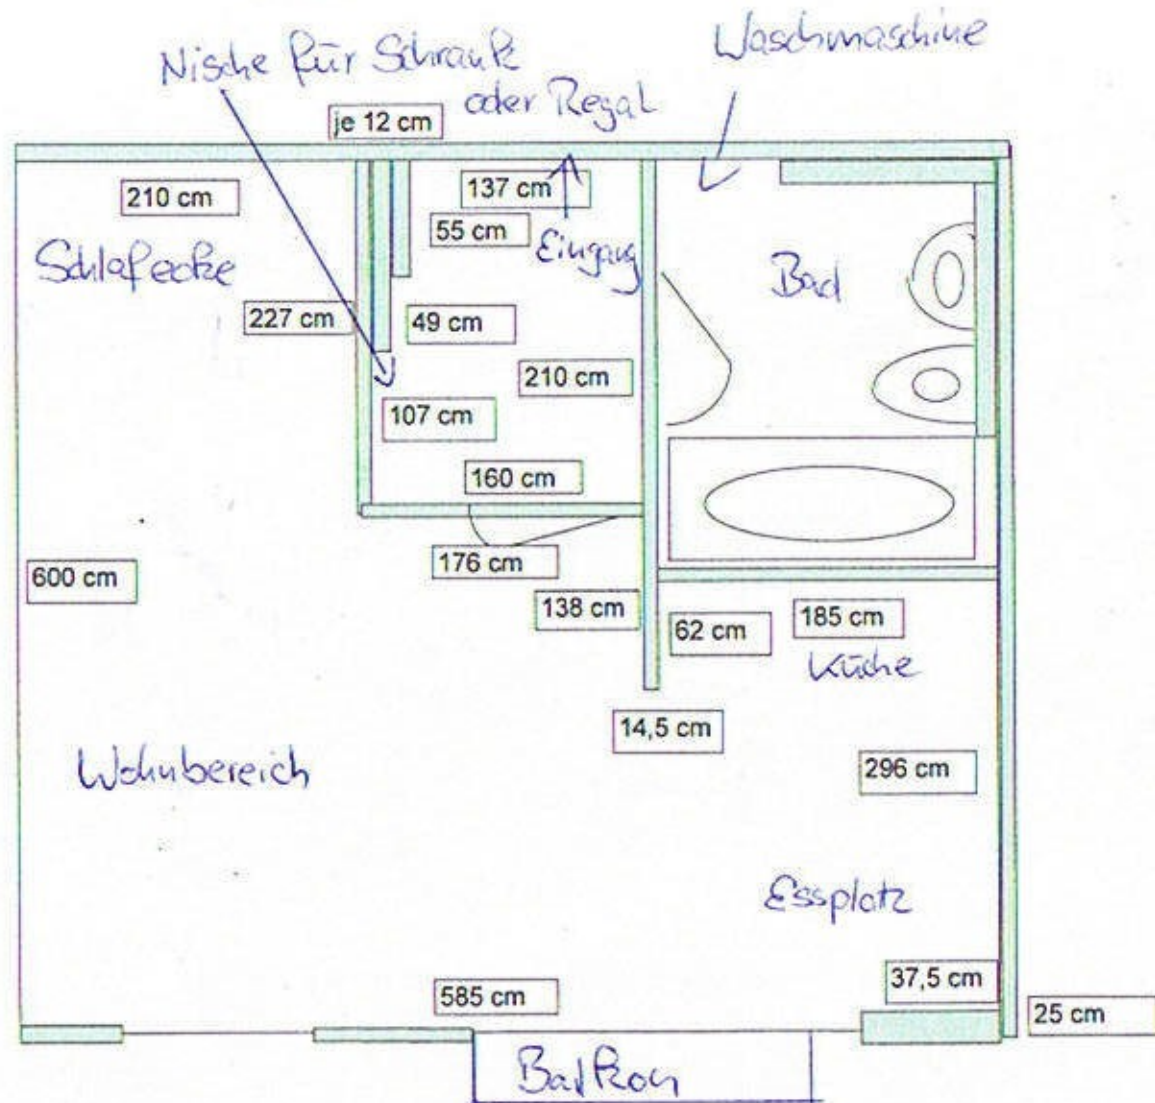 Nische für Schrank
oder Regal
Waschmaschine
je 12 cm
210 cm
137 cm
55 cm
Eingang
Schlafecke
Bad
227 cm
49 cm
210 cm
107 cm
160 cm
176 cm
600 cm
138 cm
62 cm
185 cm
Küche
14,5 cm
Wohnbereich
296 cm
Essplatz
37,5 cm
585 cm
25 cm
Balkon